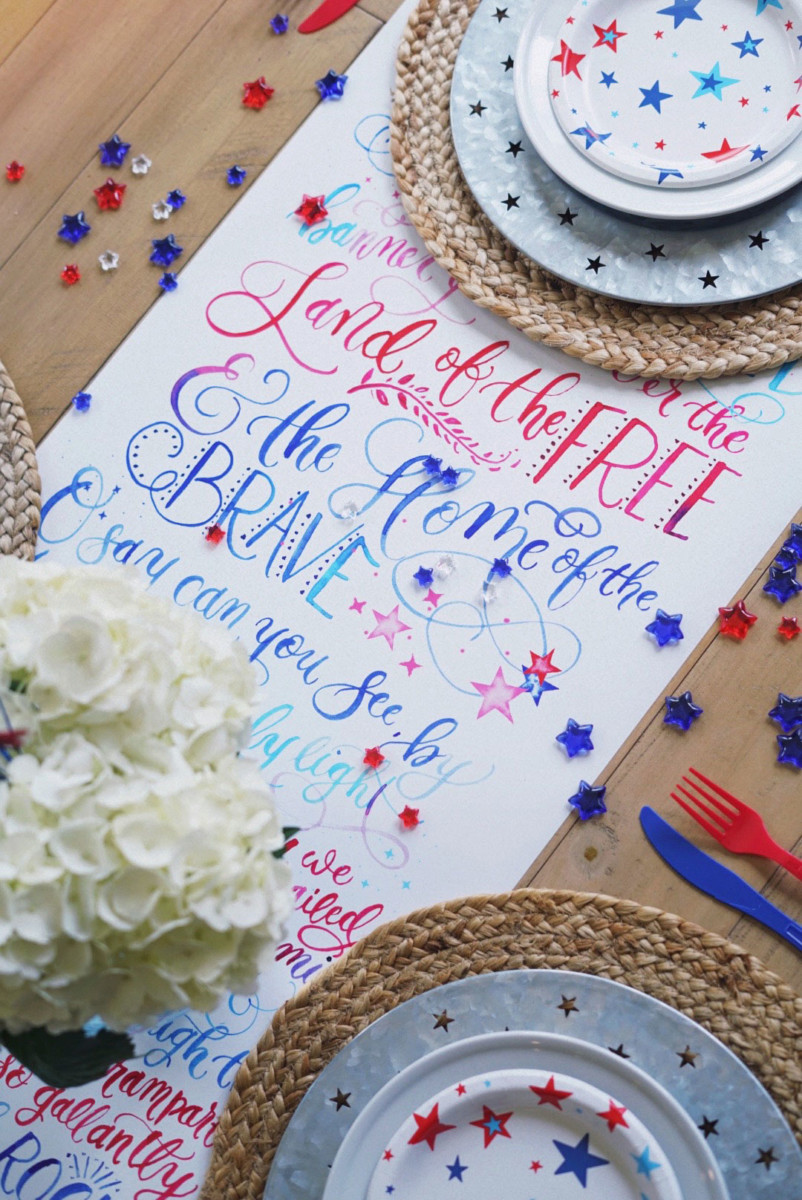 banner
er the
Land of the FREE
& the Home of the
BRAVE
O say can you see, by
by light
we
ailed
ight
rampart
so gallantly